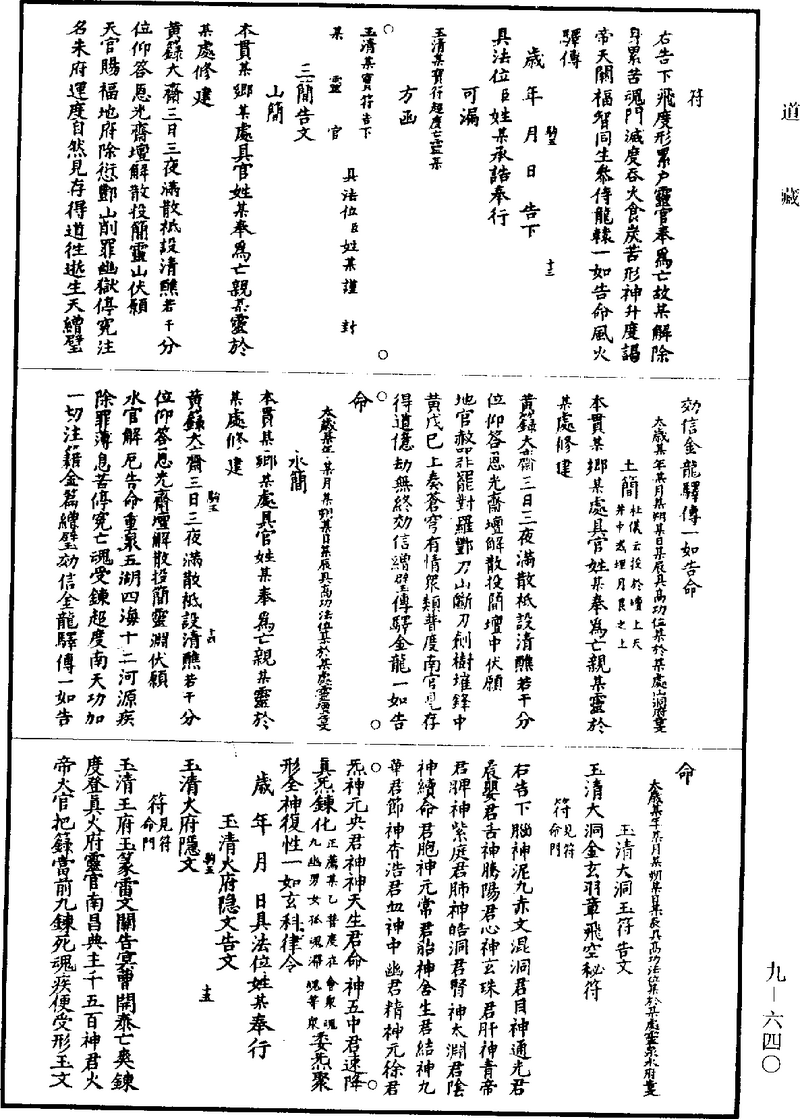 道藏
符
右告下飛度形累尸靈官奉為亡故某解除
身累苦魂門滅度吞火食炭苦形神升度謁
帝天闕福智同生參侍龍轅一如告命風火
驛傳
歲年月日告下
十三
具法位臣姓某承誥奉行
可漏
玉清某寶符超度亡靈某
方函
玉清某寶符告下
某靈官
具法位臣姓某謹封
三簡告文
山簡
本貫某鄉某處具官姓某奉為亡親某靈於
某處修建
黃籙大齋三日三夜滿散祗設清醮若干分
位仰答恩光齋壇解散投簡靈山伏願
天官賜福地府除愆酆山削罪幽獄停冤注
名朱府運度自然見存得道往逝生天繒璧
効信金龍驛傳一如告命
太歲某年某月某朔某日某辰具高功法位某於某處山洞府並叩
土簡杜儀云投於壇上天
井中或埋月良之上
本貫某鄉某處具官姓某奉為亡親某靈於
某處修建
黃籙大齋三日三夜滿散祗設清醮若干分
位仰答恩光齋壇解散投簡壇中伏願
地官赦罪罷對羅酆刀山斷刃劍樹摧鋒中
黃戊巳上奏蒼穹有情眾類普度南宮見存
得道億劫無終効信繒璧傳驛金龍一如告
命
太歲某年某月某朔某日某辰具高功法位某於某處靈壇
水簡
本貫某鄉某處具官姓某奉為亡親某靈於
某處修建
十四
黃籙大齋三日三夜滿散祗設清醮若干分
位仰答恩光齋壇解散投簡靈淵伏願
水官解厄告命重泉五湖四海十二河源疾
除罪薄息苦停冤亡魂受鍊超度南天功加
一切注籍金篇繒璧効信金龍驛傳一如告
命
太歲某年某月某朔某日某辰具高功法位某於某處靈泉水府
玉清大洞玉符告文
玉清大洞金玄羽章飛空秘符
符見符
命門
右告下腦神泥九赤文混洞君目神通光君
晨嬰君舌神騰陽君心神玄珠君肝神青帝
君脾神紫庭君肺神皓洞君腎神太淵君陰
神續命君胞神元常君胎神含生君結神九
華君節神杳浩君血神中幽君精神元徐君
炁神元央君神神天生君命神五中君速降
真炁鍊化正薦某乙普度在會眾魂
九幽男女孤魂滯魄等眾委炁聚
形全神復性一如玄科律令
歲年月日具法位姓某奉行
玉清火府隱文告文
十五
玉清火府隱文
符見符
命門
玉清王府玉篆雷文闡告冥曹開泰亡爽鍊
度登真火府靈官南昌典主千五百神君火
帝大官把籙當前九鍊死魂疾便受形玉文
九－六四〇